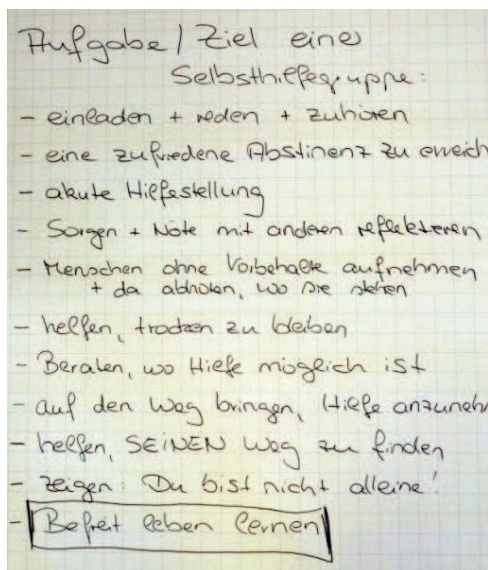 Aufgabe / Ziel einer
Selbsthilfegruppe:
- einladen + reden + zuhören
- eine zufriedene Abstinenz zu erreich
- akute Hilfestellung
- Sorgen + Nöte mit anderen reflektieren
- Menschen ohne Vorbehalte aufnehmen
+ da abholen, wo sie stehen
- helfen, trocken zu bleiben
- Beraten, wo Hilfe möglich ist
- auf den Weg bringen, Hilfe anzunehm
- helfen, SEINEN Weg zu finden
- zeigen: Du bist nicht alleine!
- Befreit leben lernen